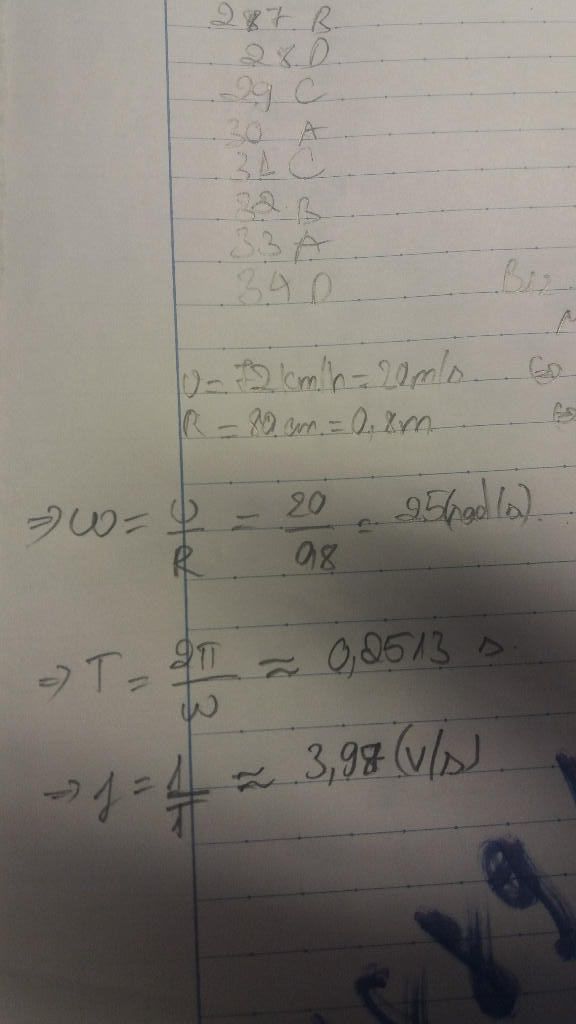 287 B
28 D
29 C
30 A
31 C
32 B
33 A
34 D
v = 72 km/h = 20 m/s
R = 80 cm = 0,8 m
⇒ ω = v/R = 20/0,8 = 25 (rad/s)
⇒ T = 2π/ω ≈ 0,2513 s
⇒ f = 1/T ≈ 3,98 (v/s)